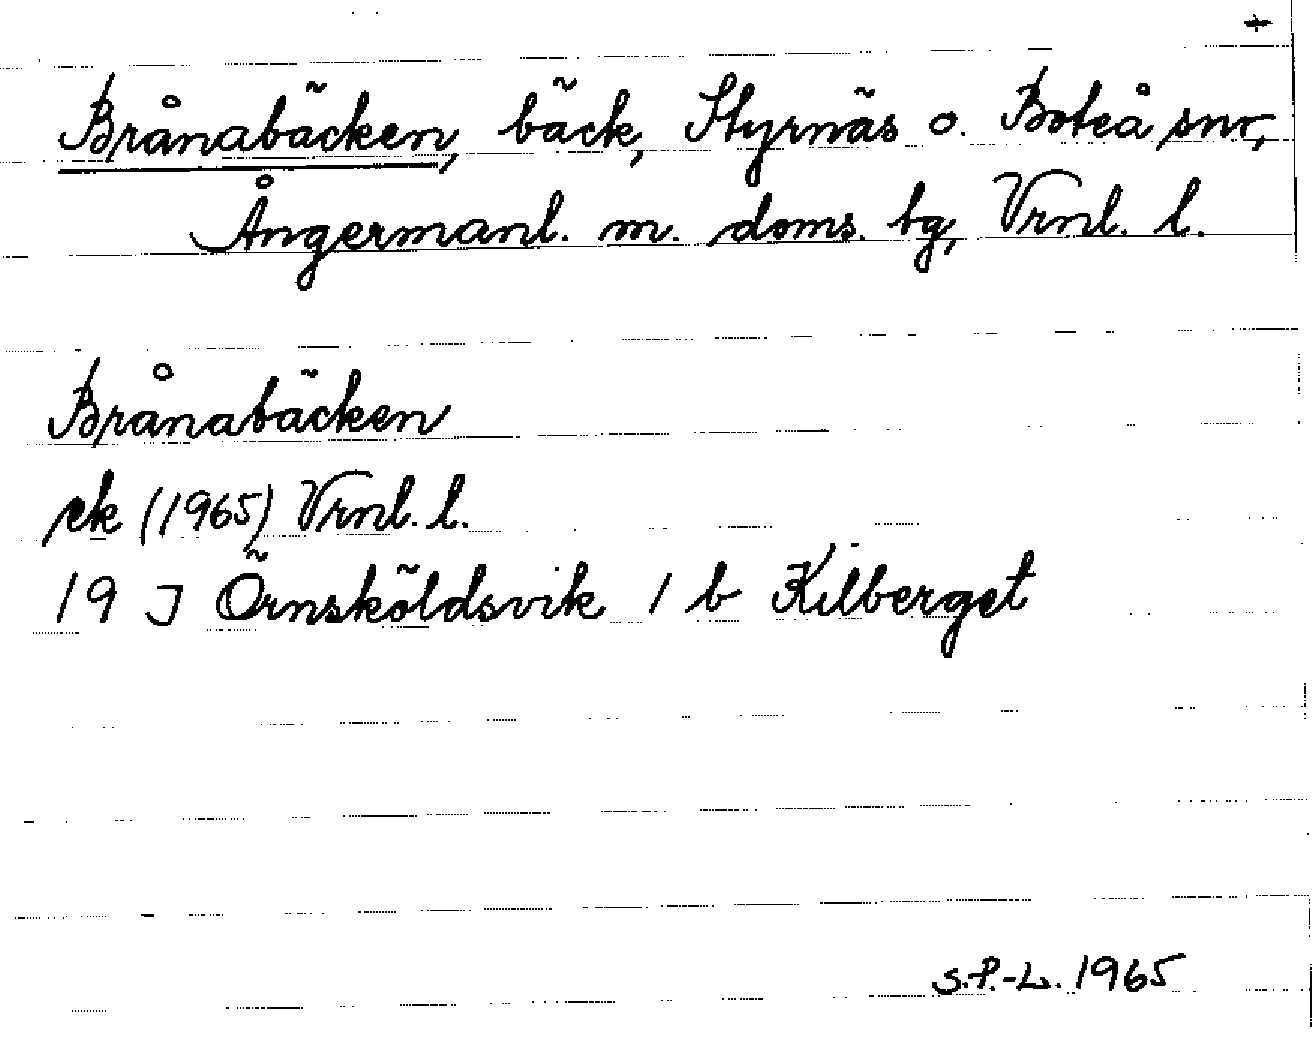 +
Brånabäcken, bäck, Styrnäs o. Boteå snr,
Ångermanl. m. doms. tg, Vrnl. l.
Brånabäcken
ek (1965) Vrnl. l.
19 J Örnsköldsvik 1 b Kilberget
S.P.-L. 1965